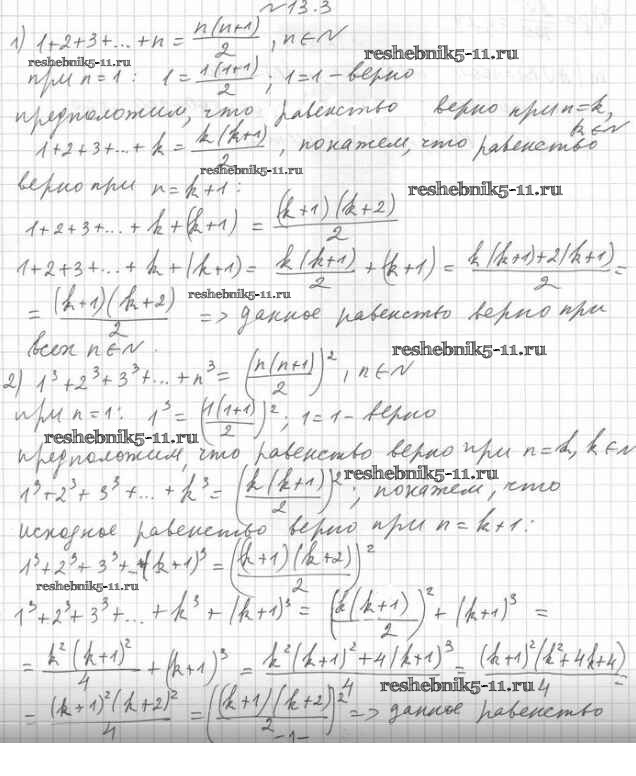 №13.3
1) 1+2+3+...+n = n(n+1)/2, n∈N
reshebnik5-11.ru
reshebnik5-11.ru
при n=1: 1 = 1(1+1)/2; 1=1 - верно
предположим, что равенство верно при n=k, k∈N
1+2+3+...+k = k(k+1)/2, покажем, что равенство
reshebnik5-11.ru
верно при n=k+1:
reshebnik5-11.ru
1+2+3+...+k+(k+1) = (k+1)(k+2)/2
1+2+3+...+k+(k+1) = k(k+1)/2 + (k+1) = k(k+1)+2(k+1)/2 =
= (k+1)(k+2)/2 => данное равенство верно при
reshebnik5-11.ru
всех n∈N.
reshebnik5-11.ru
2) 1³+2³+3³+...+n³ = (n(n+1)/2)², n∈N
при n=1: 1³ = (1(1+1)/2)²; 1=1 - верно
reshebnik5-11.ru
предположим, что равенство верно при n=k, k∈N
reshebnik5-11.ru
1³+2³+3³+...+k³ = (k(k+1)/2)²; покажем, что
исходное равенство верно при n=k+1:
1³+2³+3³+...+(k+1)³ = ((k+1)(k+2)/2)²
reshebnik5-11.ru
1³+2³+3³+...+k³+(k+1)³ = (k(k+1)/2)² + (k+1)³ =
= k²(k+1)²/4 + (k+1)³ = k²(k+1)²+4(k+1)³/4 = (k+1)²(k²+4k+4)/4 =
reshebnik5-11.ru
= (k+1)²(k+2)²/4 = ((k+1)(k+2)/2)² => данное равенство
-1-